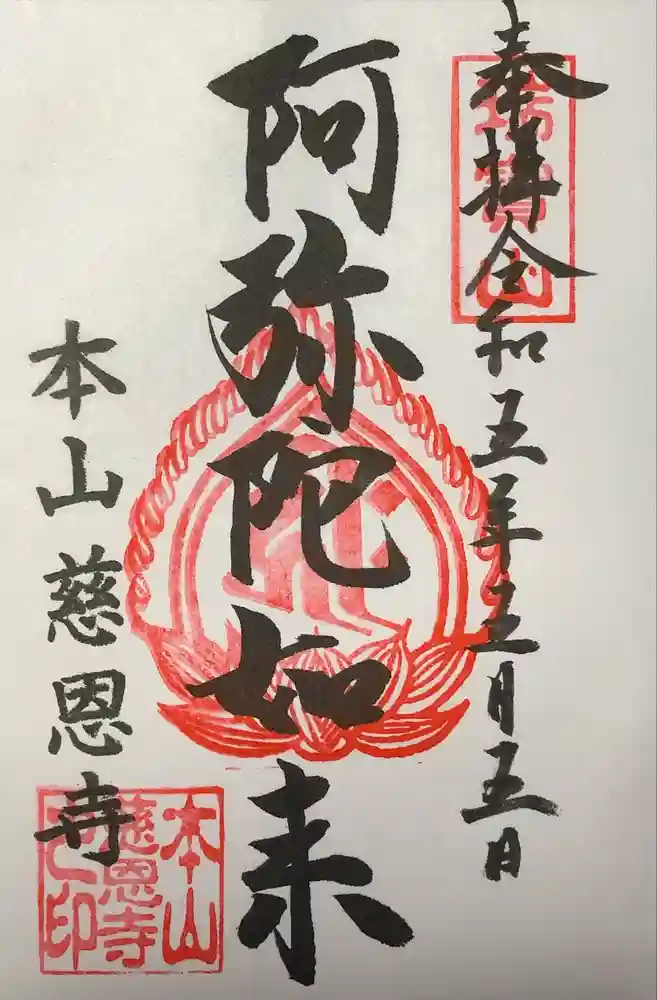 奉拝 令和五年五月五日
阿弥陀如来
本山 慈恩寺
本山
慈恩寺
之印